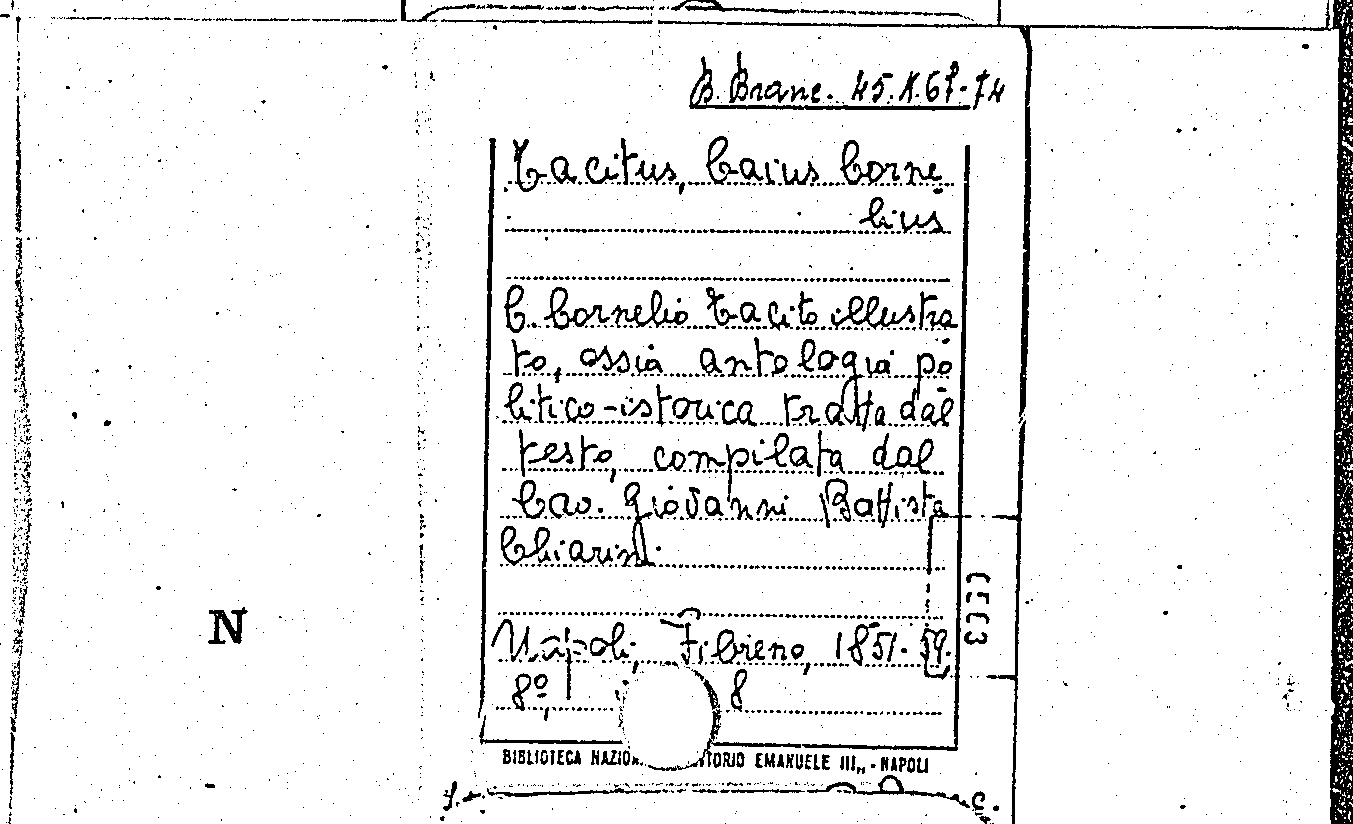 B. Branc. 45.K.67-74
Tacitus, Caius Corne
lius
C. Cornelio Tacito illustra
to, ossia antologia po
litico-istorica tratta dal
testo, compilata dal
Cav. Giovanni Battista
Chiarini.
N
Napoli, Fibreno, 1851-59.
8º, 8
BIBLIOTECA NAZION TORIO EMANUELE III„ - NAPOLI